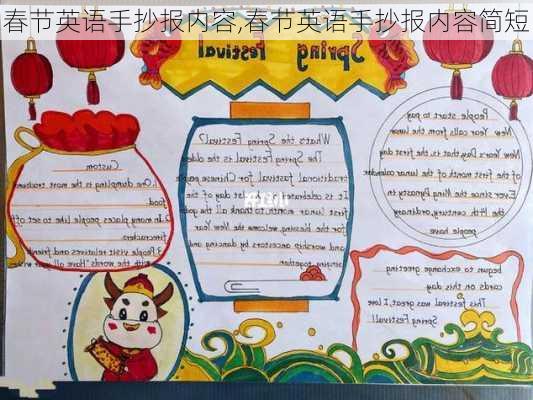 春节英语手抄报内容,春节英语手抄报内容简短
Spring
Festival
Custom
1.One dumpling is the most tradition
food.
2.In many places people like to set off
firecrackers
3.People visit relatives and friend
with the words "Have all your
What's the Spring Festival?
The Spring Festival is the oldest
traditional festival for Chinese people
It is celebrated day of the
first lunar month to thank all the god
for the blessing, welcome the New Year
and worship ancestors by dancing and
singing together.
People start to pay
New Year calls from the
New Year's Day that is, first day
of the first month of the lunar calendar
Ever since the Ming Dynasty in
the 14th century, ordinary
begun to exchange greeting
cards on this day
This festival was great, I love
Spring Festival!